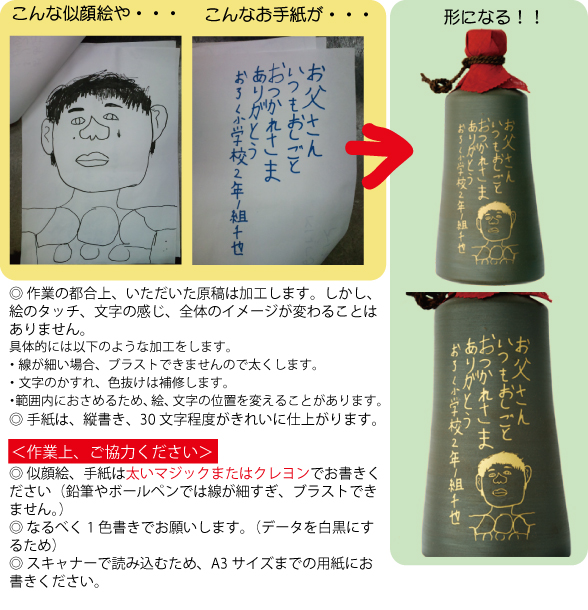 こんな似顔絵や・・・
こんなお手紙が・・・
形になる！！
お父さん
いつもおしごと
おつかれさま
ありがとう
おろく小学校2年1組千也
お父さん
いつもおしごと
おつかれさま
ありがとう
おろく小学校2年1組千也
お父さん
いつもおしごと
おつかれさま
ありがとう
おろく小学校2年1組千也
◎ 作業の都合上、いただいた原稿は加工します。しかし、
絵のタッチ、文字の感じ、全体のイメージが変わることは
ありません。
具体的には以下のような加工をします。
・線が細い場合、ブラストできませんので太くします。
・文字のかすれ、色抜けは補修します。
・範囲内におさめるため、絵、文字の位置を変えることがあります。
◎ 手紙は、縦書き、30 文字程度がきれいに仕上がります。
＜作業上、ご協力ください＞
◎ 似顔絵、手紙は太いマジックまたはクレヨンでお書きく
ださい（鉛筆やボールペンでは線が細すぎ、ブラストでき
ません。）
◎ なるべく 1 色書きでお願いします。（データを白黒にす
るため）
◎ スキャナーで読み込むため、A3 サイズまでの用紙にお
書きください。